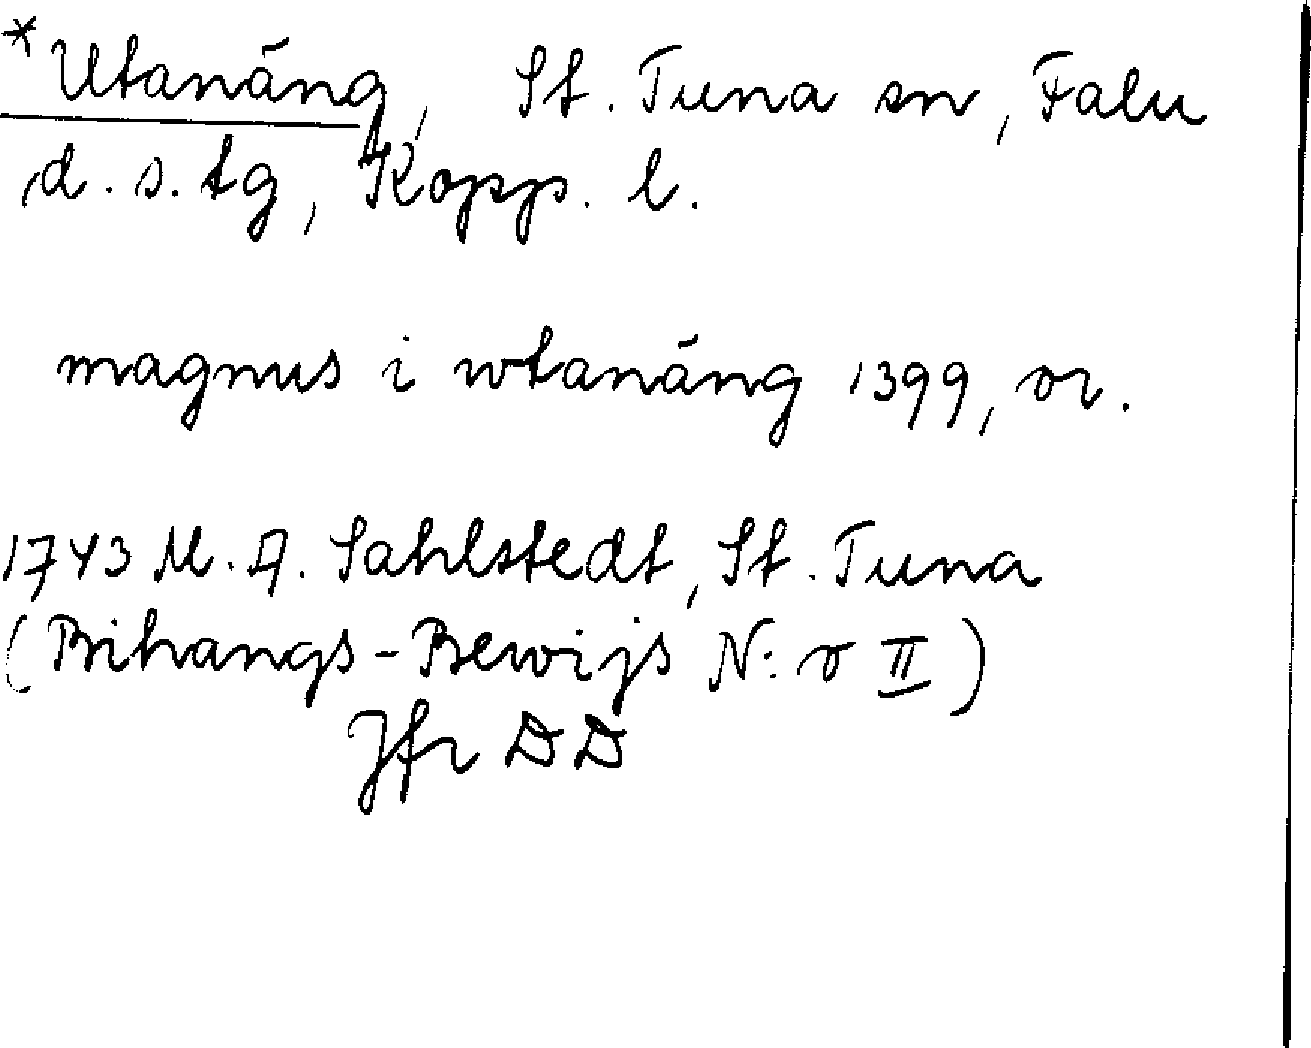 *Utanäng, St. Tuna sn, Falu
d. s. tg, Kopp. l.
magnus i wtanäng 1399, or.
1743 M. A. Sahlstedt, St. Tuna
(Bihangs-Bewijs N:o II)
Jfr DD